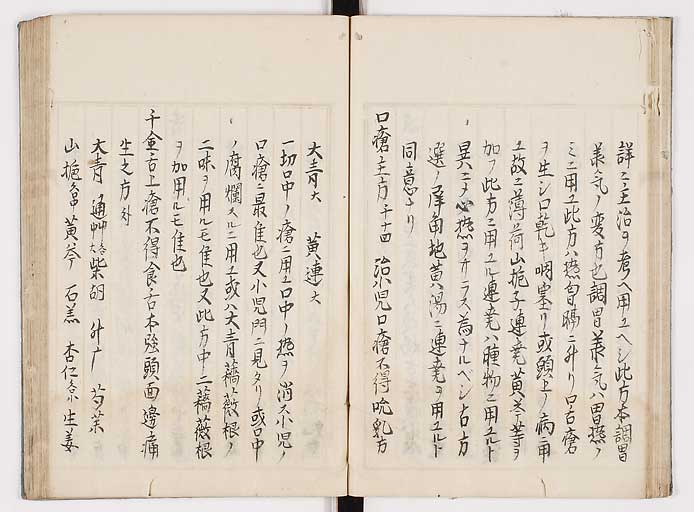 詳ニ主治ヲ考ヘ用ユヘシ此方本調胃
承気ノ変方也調胃承気ハ胃熱ノ
ミニ用ユ此方ハ熱自腸ニ升リ口舌瘡
ヲ生シ口乾キ咽塞リ或頭上ノ病ニ用
ユ故ニ薄荷山梔子連堯黄芩等ヲ
加フ此方ニ用ユル連堯ハ腫物ニ用ユルト
異ニテ心熱ヲサラス為ナルベシ古方
選ノ犀角地黄湯ニ連堯ヲ用ユルト
同意ナリ
口瘡主方 千十四 治小児口瘡不得吮乳方
大青 大 黄連 大
一切口中ノ瘡ニ用ユ口中ノ熱ヲ消ス小児ノ
口瘡ニ最佳也又小児門ニ見タリ或口中
ノ腐爛スルニ用ユ或ハ大青薔薇根ノ
二味ヲ用ルモ佳也又此方中ニ薔薇根
ヲ加用ルモ佳也
千金舌上瘡不得食舌本強頭面邊痛
生之方 外
大青 通艸 柴胡 升广 芍薬
山梔 黄芩 石羔 杏仁 生姜